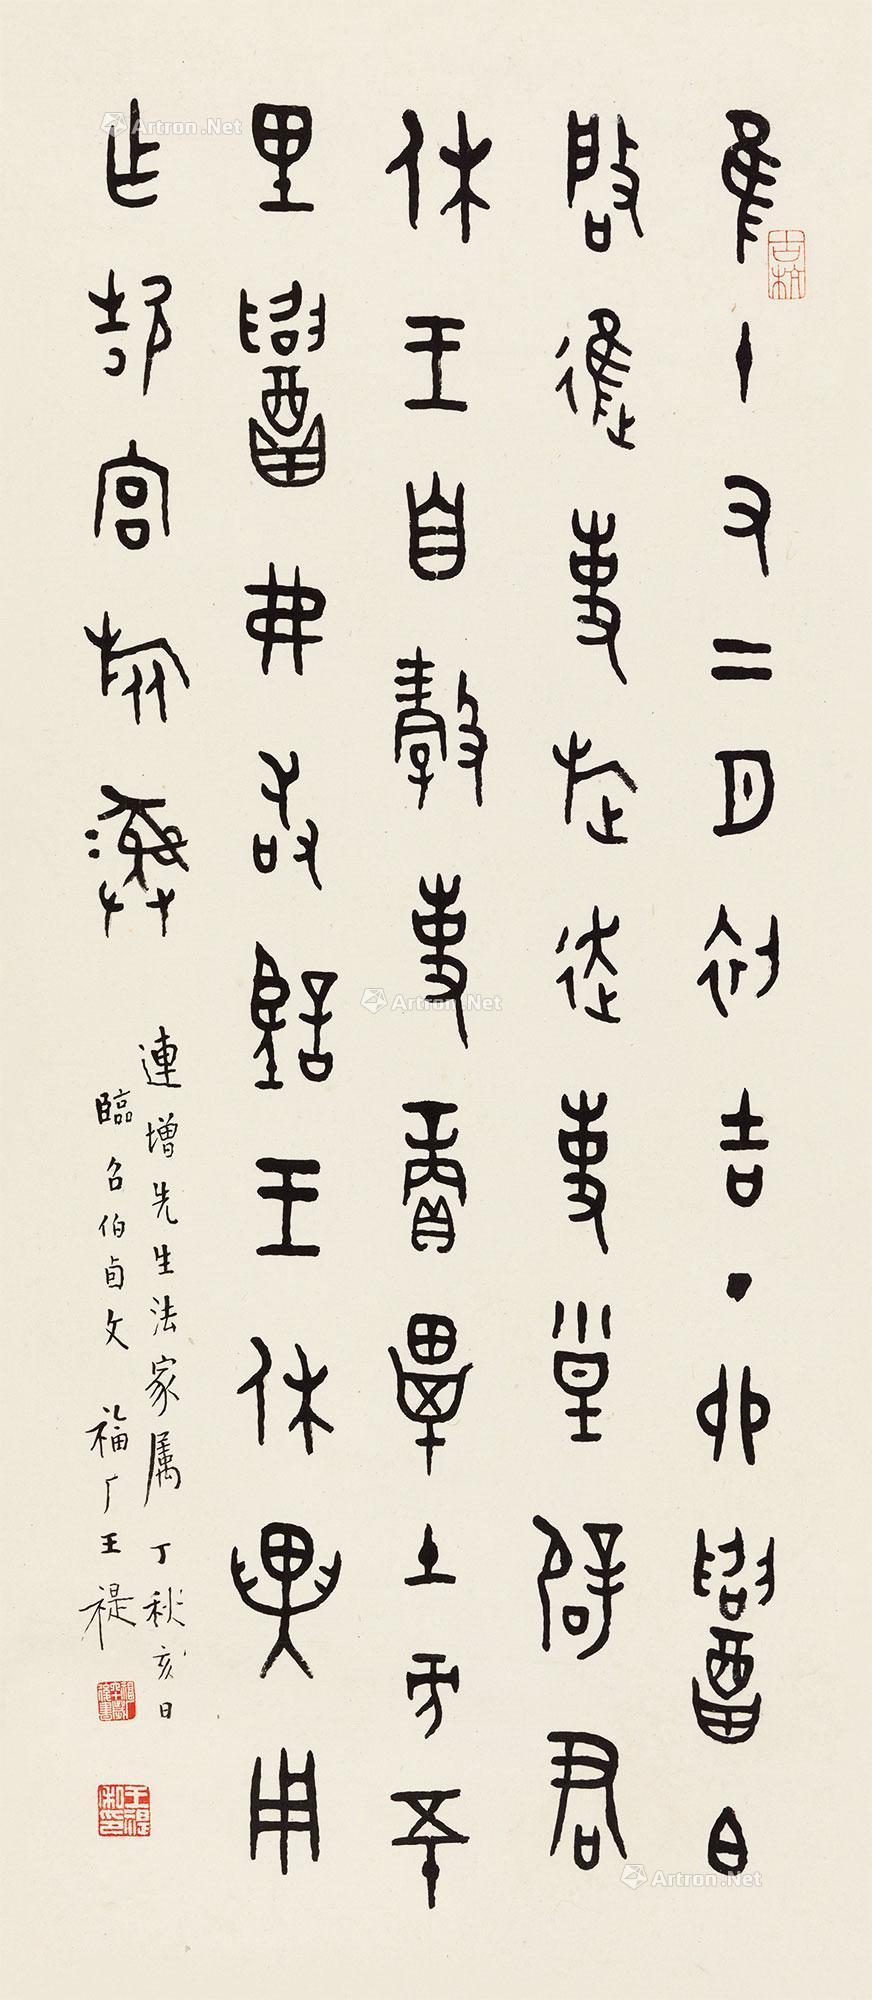 隹十又二月初吉丁卯召白
啟進事旋走事皇辟君
休王自穀事賞畢土方五十
里召弗敢忘王休異用
乍宮旅彝
連增先生法家属 丁秋亥日
臨召伯卣文 福厂王禔
古杭
王禔私印